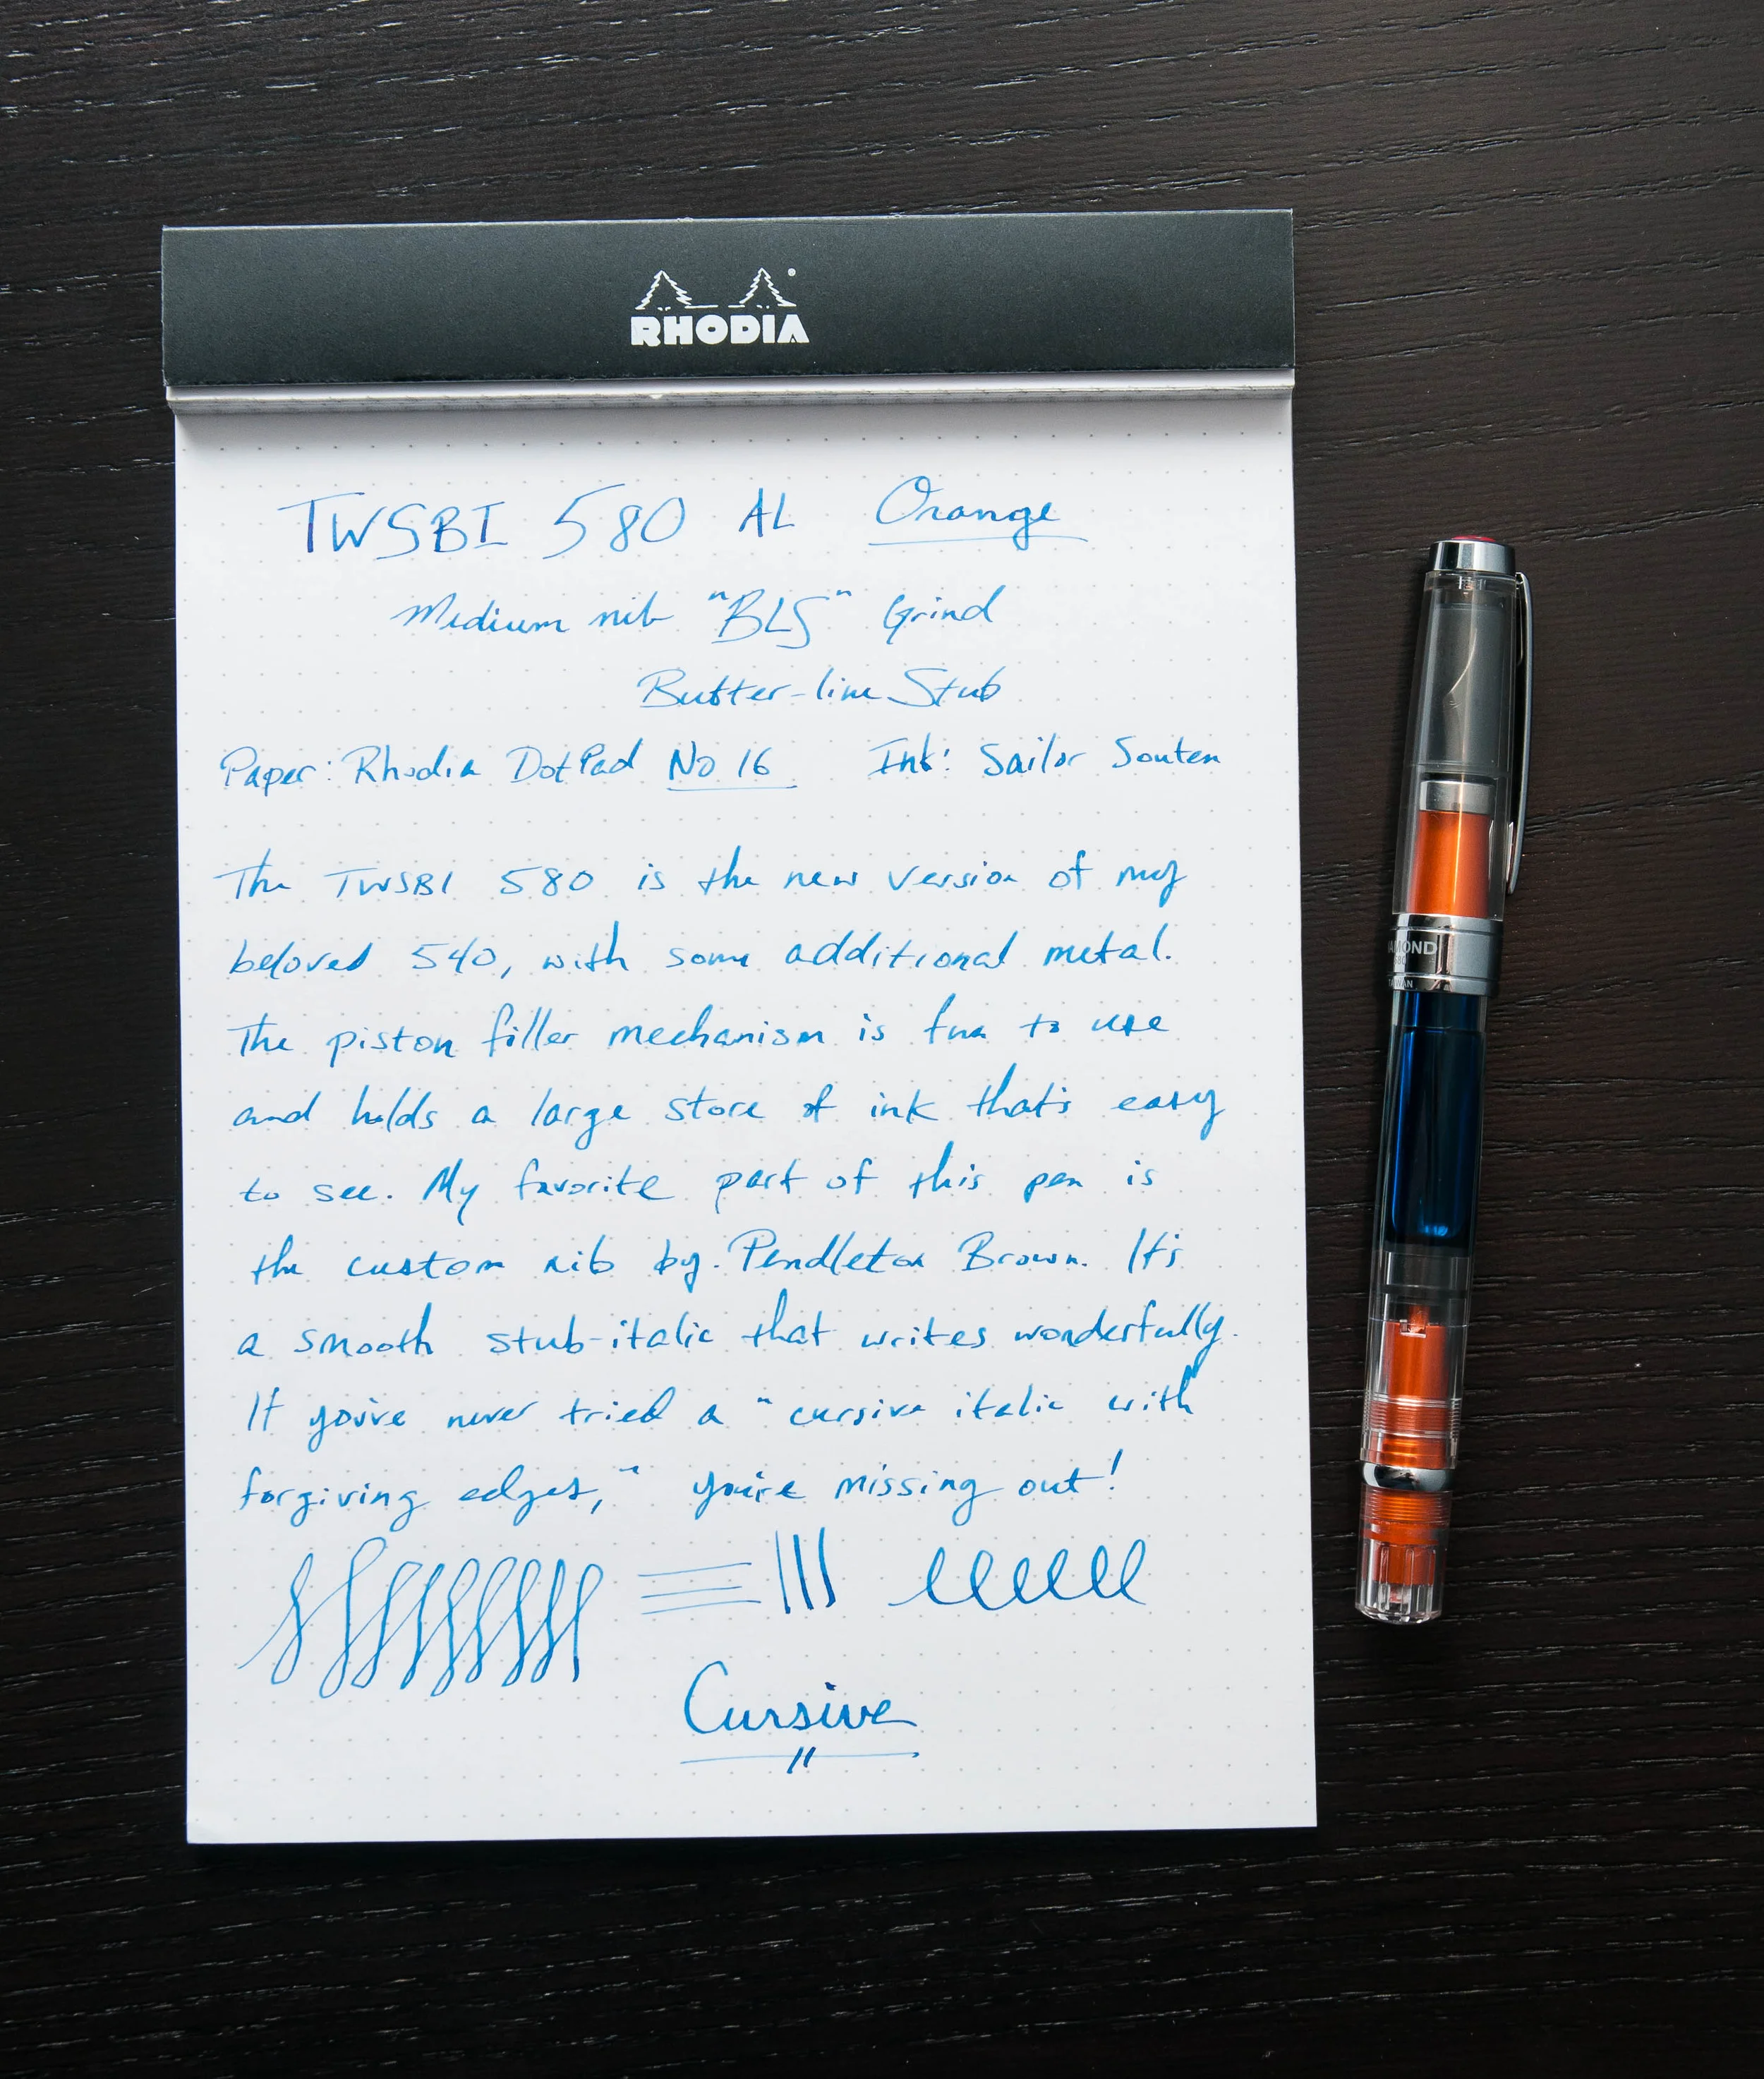 RHODIA
TWSBI 580 AL Orange
Medium nib "BLS" Grind
Butter-line Stub
Paper: Rhodia DotPad No 16 Ink: Sailor Souten
The TWSBI 580 is the new version of my
beloved 540, with some additional metal.
The piston filler mechanism is fun to use
and holds a large store of ink that's easy
to see. My favorite part of this pen is
the custom nib by Pendleton Brown. It's
a smooth stub-italic that writes wonderfully.
If you've never tried a "cursive italic with
forgiving edges," you're missing out!
Cursive